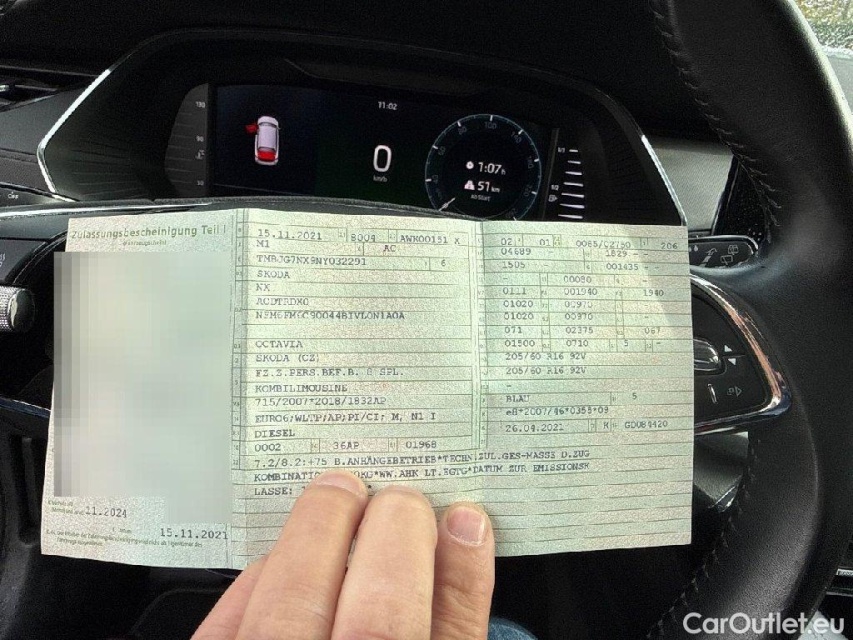 11:02
0
km/h
1:07h
57 km
AB START
Zulassungsbescheinigung Teil I
15.11.2021 8004 AWK00151 X
M1 AC
TMBJG7NX9NY032291 6
SKODA
NX
ACDTRDX0
OCTAVIA
SKODA (CZ)
FZ.Z.PERS.BEF.B. 8 SPL.
KOMBILIMOUSINE
715/2007*2018/1832AP
EURO6;WLTP;AP;PI/CI; M, N1 I
DIESEL
0002 36AP 01968
7.2/8.2:+75 B.ANHÄNGEBETRIEB*TECHN.ZUL.GES-MASSE D.ZUG
*WW.AHK LT.EGTG*DATUM ZUR EMISSIONSK
LASSE:
11.2024
15.11.2021
02 01 0085/02750 206
04689 1829 -
1505 001435-
00080
0111 001940 1940
01020 00970
01020 00970
071 02375 067
01500 0710 5 -
205/60 R16 92V
205/60 R16 92V
-
BLAU 5
e8*2007/46*0355*09
26.04.2021 K GD084420
CarOutlet.eu